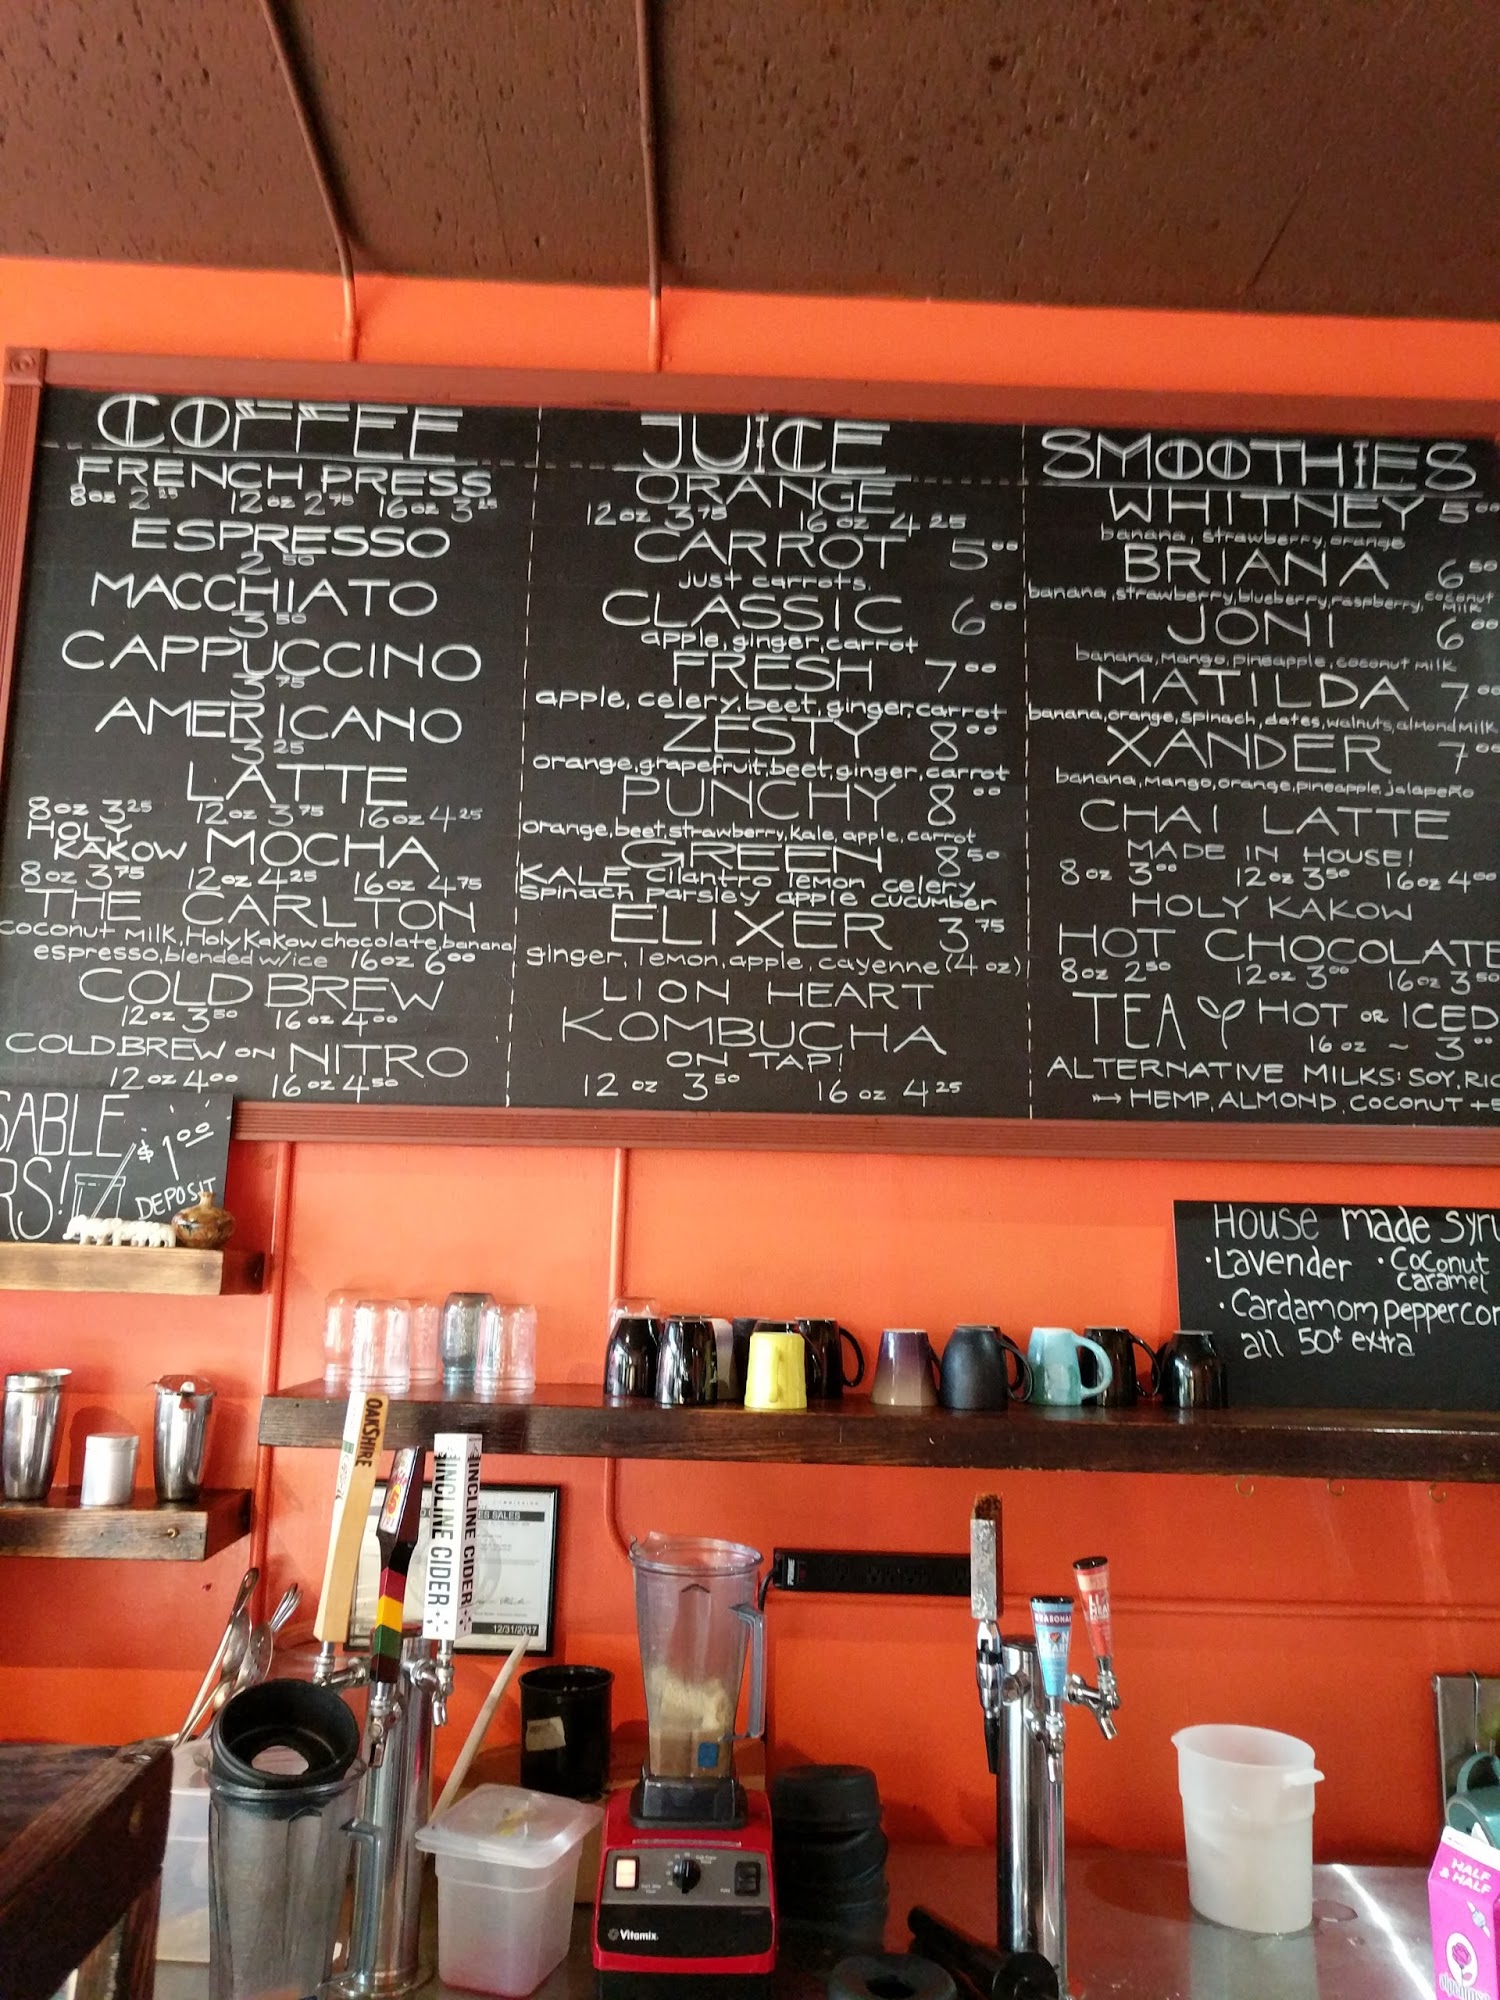 COFFEE
FRENCH PRESS
8oz 2 25 12oz 2 75 16oz 3 25
ESPRESSO
2 50
MACCHIATO
3 50
CAPPUCCINO
3 75
AMERICANO
3 25
LATTE
8oz 3 25 12oz 3 75 16oz 4 25
HOLY KAKOW MOCHA
8oz 3 75 12oz 4 25 16oz 4 75
THE CARLTON
coconut milk, Holy Kakow chocolate, banana
espresso, blended w/ice 16oz 6 00
COLD BREW
12oz 3 50 16oz 4 00
COLD BREW ON NITRO
12oz 4 00 16oz 4 50
JUICE
ORANGE
12oz 3 75 16oz 4 25
CARROT 5 00
just carrots.
CLASSIC 6 00
apple, ginger, carrot
FRESH 7 00
apple, celery, beet, ginger, carrot
ZESTY 8 00
orange, grapefruit, beet, ginger, carrot
PUNCHY 8 00
orange, beet, strawberry, kale, apple, carrot
GREEN 8 50
KALE cilantro lemon celery
spinach parsley apple cucumber
ELIXER 3 75
ginger, lemon, apple, cayenne (4 oz)
LION HEART
KOMBUCHA
ON TAP!
12 oz 3 50 16 oz 4 25
SMOOTHIES
WHITNEY 5 00
banana, strawberry, orange
BRIANA 6 50
banana, strawberry, blueberry, raspberry, coconut milk
JONI 6 00
banana, mango, pineapple, coconut milk
MATILDA 7 00
banana, orange, spinach, dates, walnuts, almond milk
XANDER 7 00
banana, mango, orange, pineapple, jalapeño
CHAI LATTE
MADE IN HOUSE!
8oz 3 00 12oz 3 50 16oz 4 00
HOLY KAKOW
HOT CHOCOLATE
8oz 2 50 12oz 3 00 16oz 3 50
TEA HOT OR ICED
16 oz ~ 3 00
ALTERNATIVE MILKS: SOY, RIC
HEMP, ALMOND, COCONUT +
SABLE
RS!
$1 00
DEPOSIT
House made Syru
• Lavender • Coconut caramel
• Cardamom peppercor
all 50¢ extra
OAKSHIRE
INCLINE CIDER
INCLINE CIDER
ES SALES
12/31/2017
SEASONAL
Vitamix
HALF & HALF